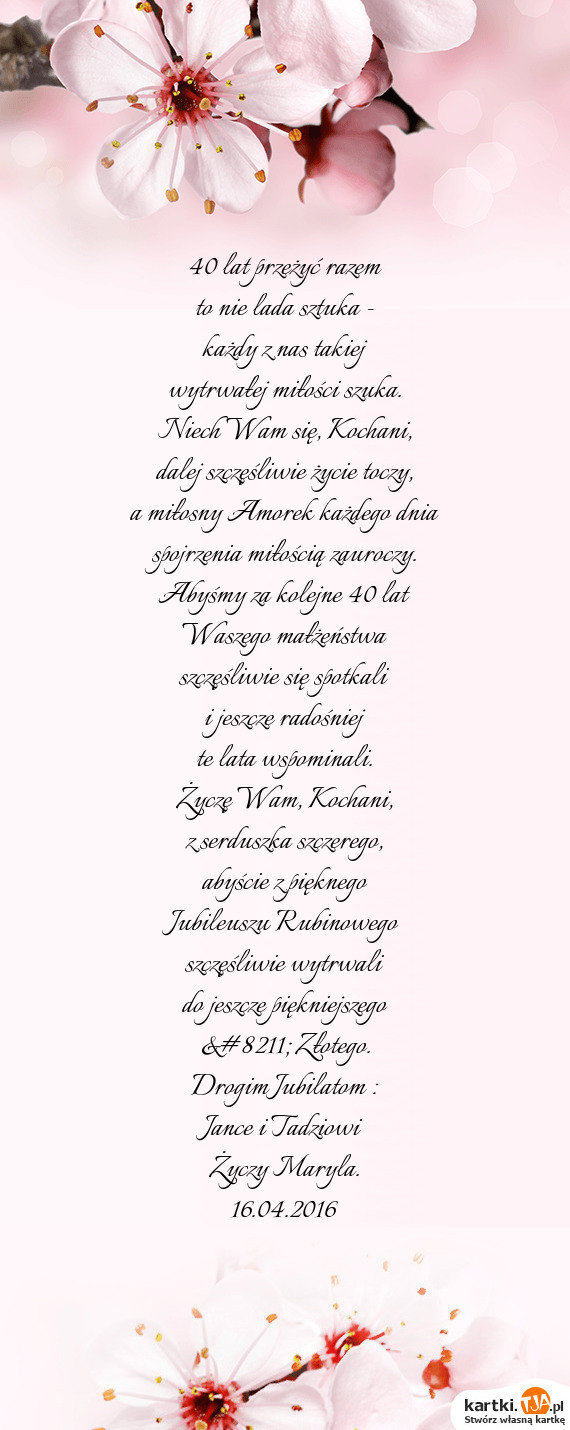 40 lat przeżyć razem
to nie lada sztuka -
każdy z nas takiej
wytrwałej miłości szuka.
Niech Wam się, Kochani,
dalej szczęśliwie życie toczy,
a miłosny Amorek każdego dnia
spojrzenia miłością zauroczy.
Abyśmy za kolejne 40 lat
Waszego małżeństwa
szczęśliwie się spotkali
i jeszcze radośniej
te lata wspominali.
Życzę Wam, Kochani,
z serduszka szczerego,
abyście z pięknego
Jubileuszu Rubinowego
szczęśliwie wytrwali
do jeszcze piękniejszego
&#8211; Złotego.
Drogim Jubilatom :
Jance i Tadziowi
Życzy Maryla.
16.04.2016
kartki.TJA.pl
Stwórz własną kartkę